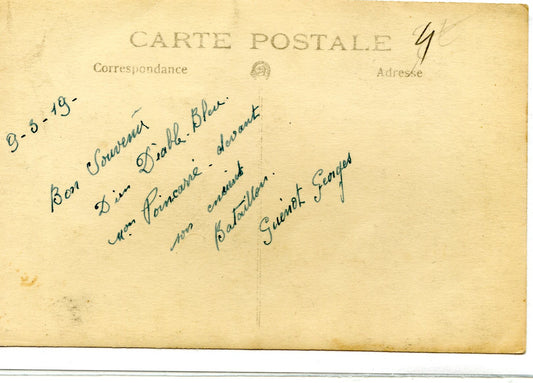 CARTE POSTALE
Correspondance
Adresse
9-3-19-
Bon Souvenir
D'un Diable-Bleu.
Poincarré - devant
son
Bataillon.
Guénot Georges